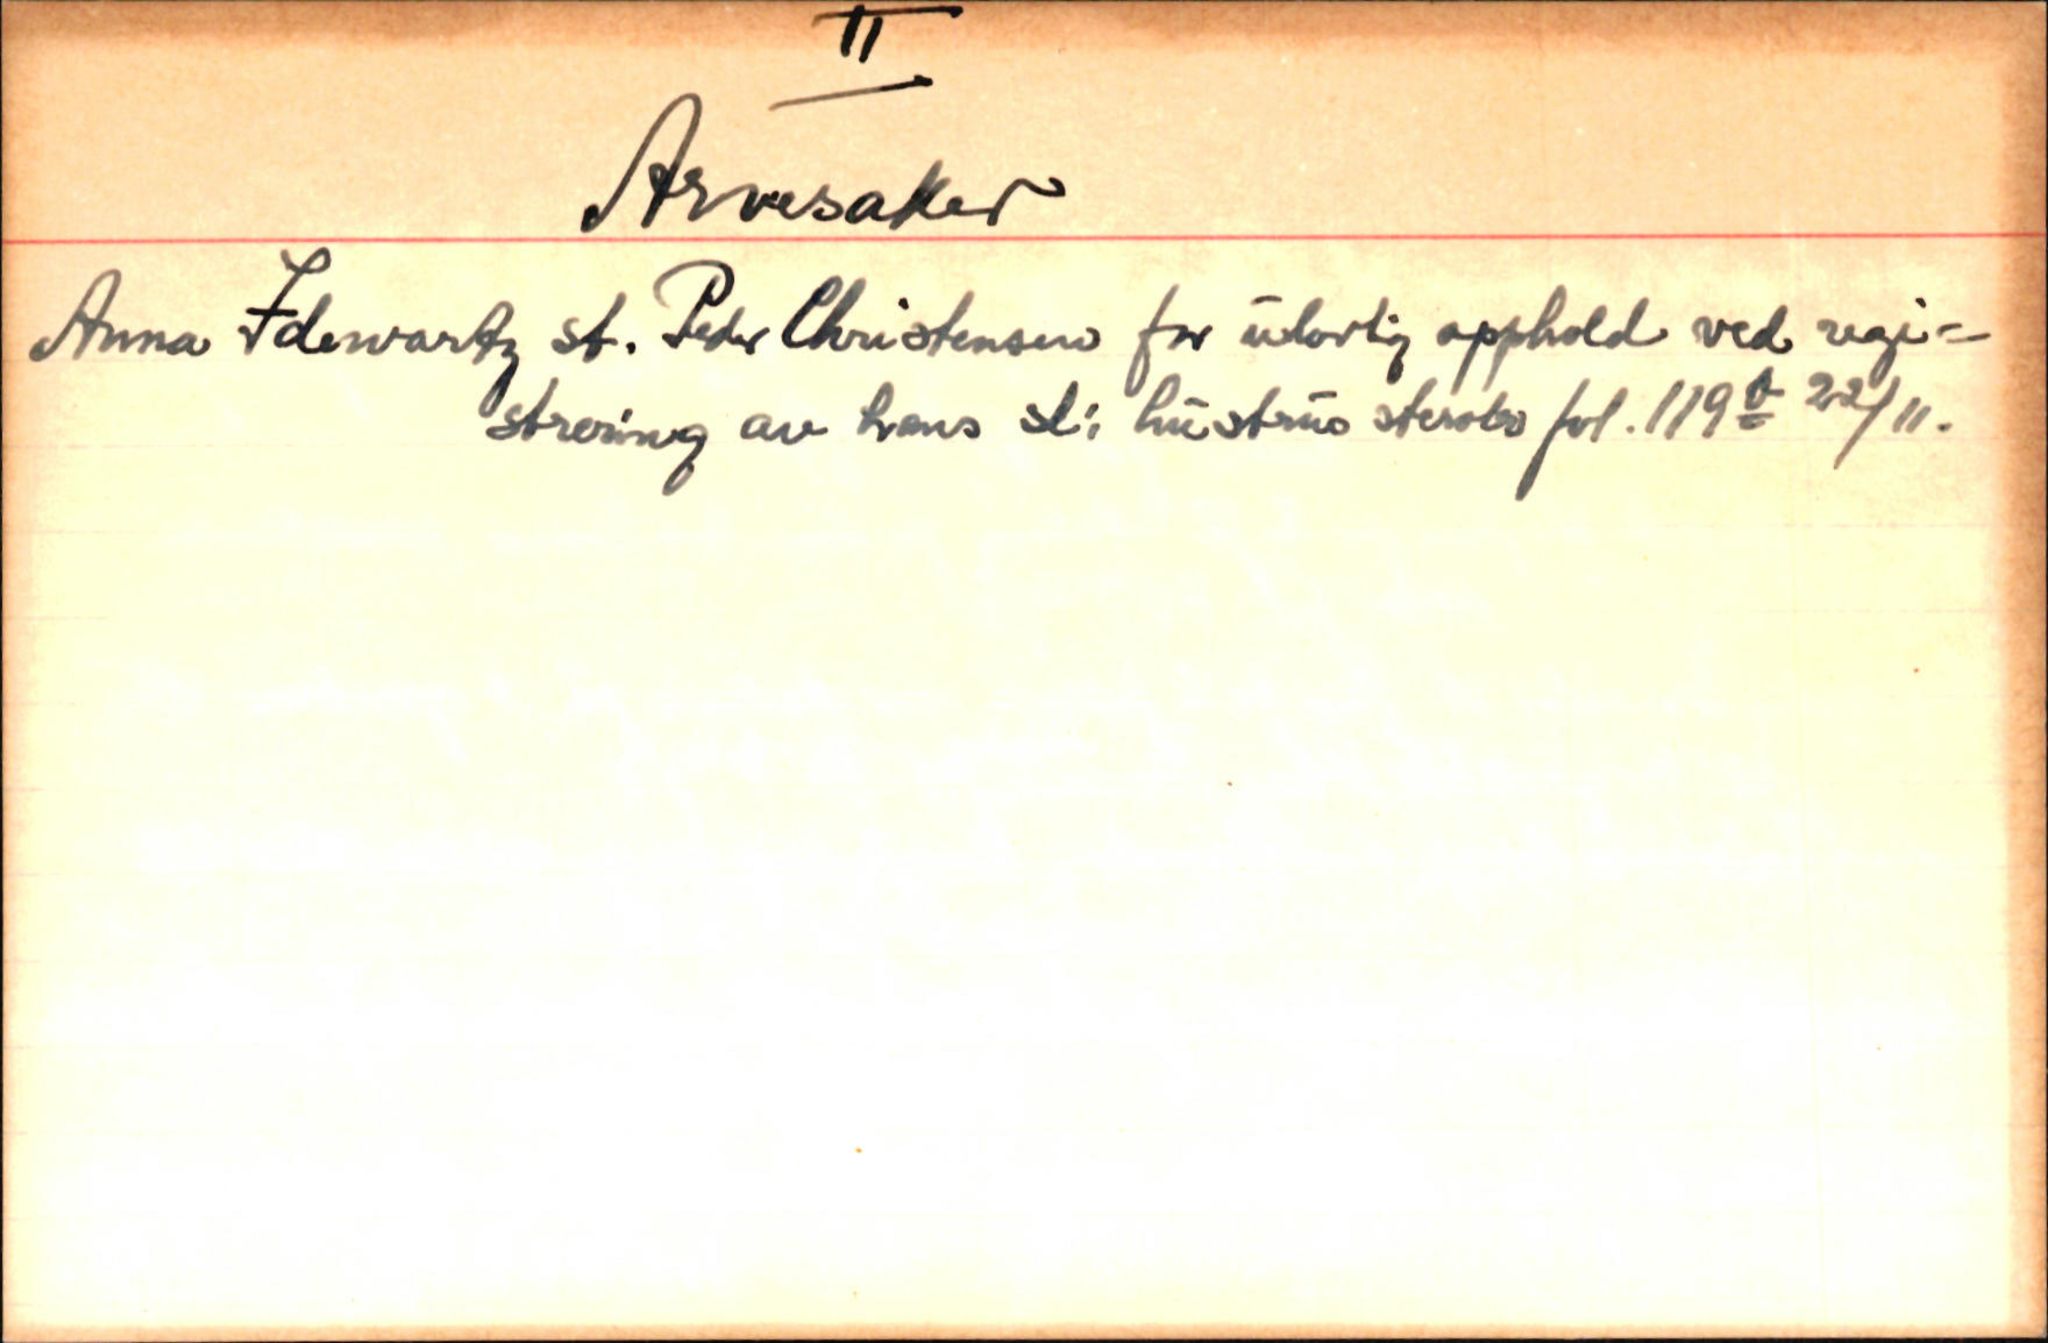 II
Arvesaker
Anna Idewartz st. Peder Christensen for ulovlig opphold ved regi=
strering av hans sl: hustrus sterbo fol. 119 b 22/11.